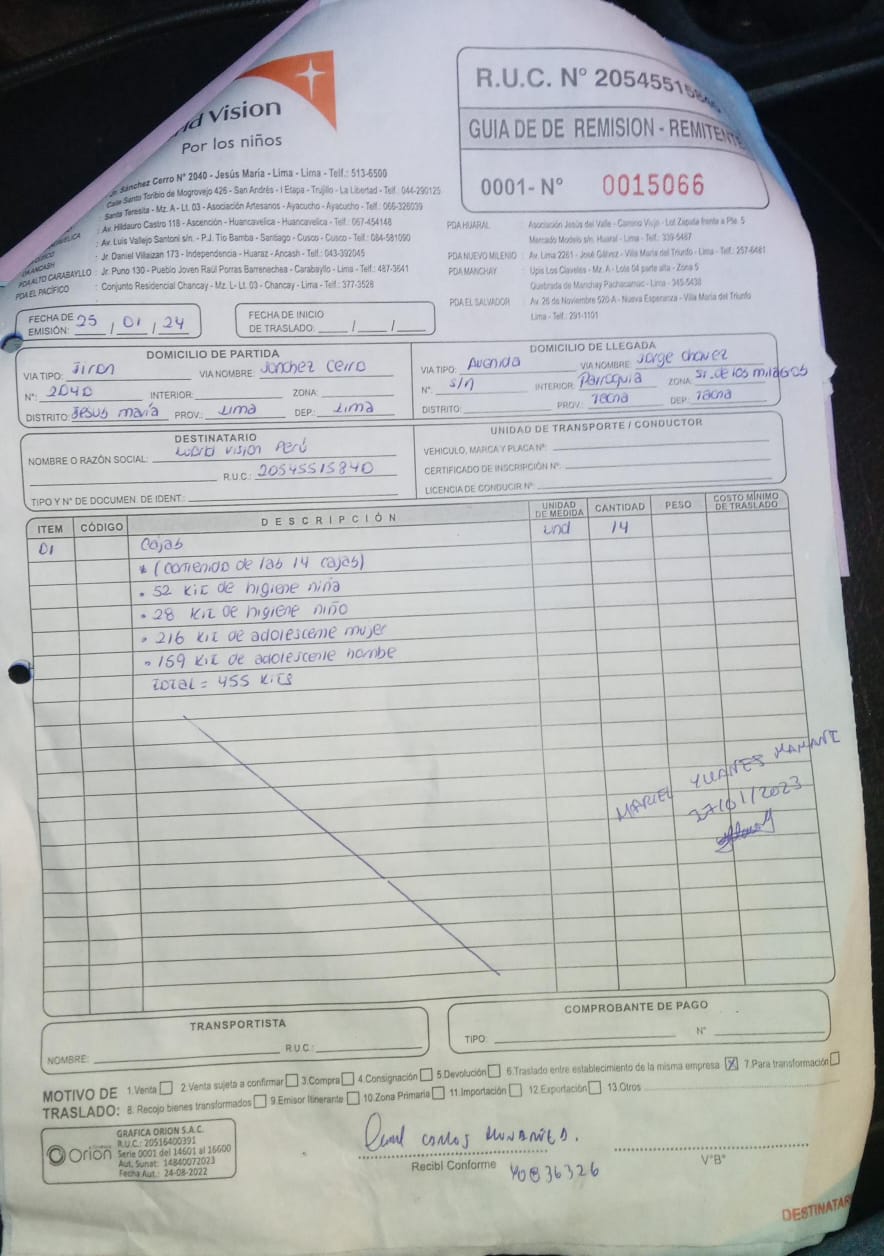 Vision
Por los niños
R.U.C. N° 205455158
GUIA DE DE REMISION - REMITENTE
0001- N° 0015066
Jr. Sánchez Cerro N° 2040 - Jesús María - Lima - Lima - Telf.: 513-6500
Calle Santo Toribio de Mogrovejo 426 - San Andrés - I Etapa - Trujillo - La Libertad - Telf. 044-290125
Santa Teresita - Mz. A - Lt. 03 - Asociación Artesanos - Ayacucho - Ayacucho - Telf.: 066-326039
: Av. Hildauro Castro 118 - Ascención - Huancavelica - Huancavelica - Telf.: 067-454148
: Av. Luis Vallejo Santoni s/n. - P.J. Tío Bamba - Santiago - Cusco - Cusco - Telf.: 084-581090
: Jr. Daniel Villaizan 173 - Independencia - Huaraz - Ancash - Telf.: 043-392045
PDA ALTO CARABAYLLO : Jr. Puno 130 - Pueblo Joven Raúl Porras Barrenechea - Carabayllo - Lima - Telf.: 487-3641
PDA EL PACÍFICO : Conjunto Residencial Chancay - Mz. L- Lt. 03 - Chancay - Lima - Telf.: 377-3528
PDA HUARAL Asociación Jesús del Valle - Camino Viejo - Lot Zapata frente a Pte. 5
Mercado Modelo s/n. Huaral - Lima - Telf.: 339-5487
PDA NUEVO MILENIO : Av. Lima 2261 - José Gálvez - Villa María del Triunfo - Lima - Telf.: 257-6481
PDA MANCHAY : Upis Los Claveles - Mz. A - Lote 04 parte alta - Zona 5
Quebrada de Manchay Pachacamac - Lima - 345-5438
PDA EL SALVADOR : Av. 26 de Noviembre 520-A - Nueva Esperanza - Villa María del Triunfo
Lima - Telf.: 291-1101
FECHA DE EMISIÓN: 25 / 01 / 24
FECHA DE INICIO DE TRASLADO: / /
DOMICILIO DE PARTIDA
VIA TIPO: Jiron VIA NOMBRE: Sanchez Cerro
N°: 2040 INTERIOR: ZONA:
DISTRITO: Jesus maría PROV.: Lima DEP.: Lima
DOMICILIO DE LLEGADA
VIA TIPO: Avenida VIA NOMBRE: Jorge Chavez
N°: s/n INTERIOR: Parroquia ZONA: Sr. de los milagros
DISTRITO: PROV.: Tacna DEP.: Tacna
DESTINATARIO
NOMBRE O RAZÓN SOCIAL: World Vision Perú
R.U.C.: 20545515840
TIPO Y N° DE DOCUMEN. DE IDENT.:
UNIDAD DE TRANSPORTE / CONDUCTOR
VEHICULO, MARCA Y PLACA N°:
CERTIFICADO DE INSCRIPCIÓN N°:
LICENCIA DE CONDUCIR N°:
ITEM CÓDIGO DESCRIPCIÓN UNIDAD DE MEDIDA CANTIDAD PESO COSTO MÍNIMO DE TRASLADO
01 Cajas und 14
* (Contenido de las 14 cajas)
• 52 Kit de higiene niña
• 28 Kit de higiene niño
• 216 Kit de adolescente mujer
• 159 Kit de adolescente hombe
Total = 455 Kits
MARIEL YUANES MAMANI
27/01/2023
TRANSPORTISTA
NOMBRE: R.U.C.:
COMPROBANTE DE PAGO
TIPO: N°
MOTIVO DE TRASLADO: 1.Venta 2.Venta sujeta a confirmar 3.Compra 4.Consignación 5.Devolución 6.Traslado entre establecimiento de la misma empresa X 7.Para transformación
8. Recojo bienes transformados 9.Emisor Itinerante 10.Zona Primaria 11.Importación 12.Exportación 13.Otros
Orión
GRAFICA ORION S.A.C.
R.U.C.: 20516400391
Serie 0001 del 14601 al 16600
Aut. Sunat: 14840072023
Fecha Aut.: 24-08-2022
Recibí Conforme
40836326
V°B°
DESTINATAR